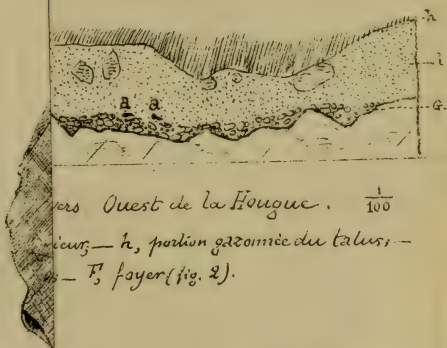 h
i
a a
G.
vers Ouest de la Hougue. 1/100
ieur; — h, portion gazonnée du talus; —
— F, foyer (fig. 2).